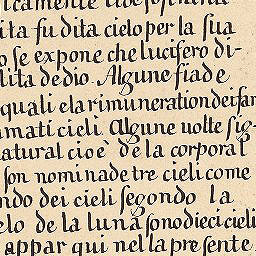 ita fu dita cielo per la sua
o se expone che lucifero di-
lita de dio. Algune fiade
quali e la rimuneration dei san
mati cieli. Algune uolte sig-
natural cioè de la corporal
son nominade tre cieli come
ndo dei cieli segondo la
elo de la luna sono dieci cieli
appar qui nel la presente